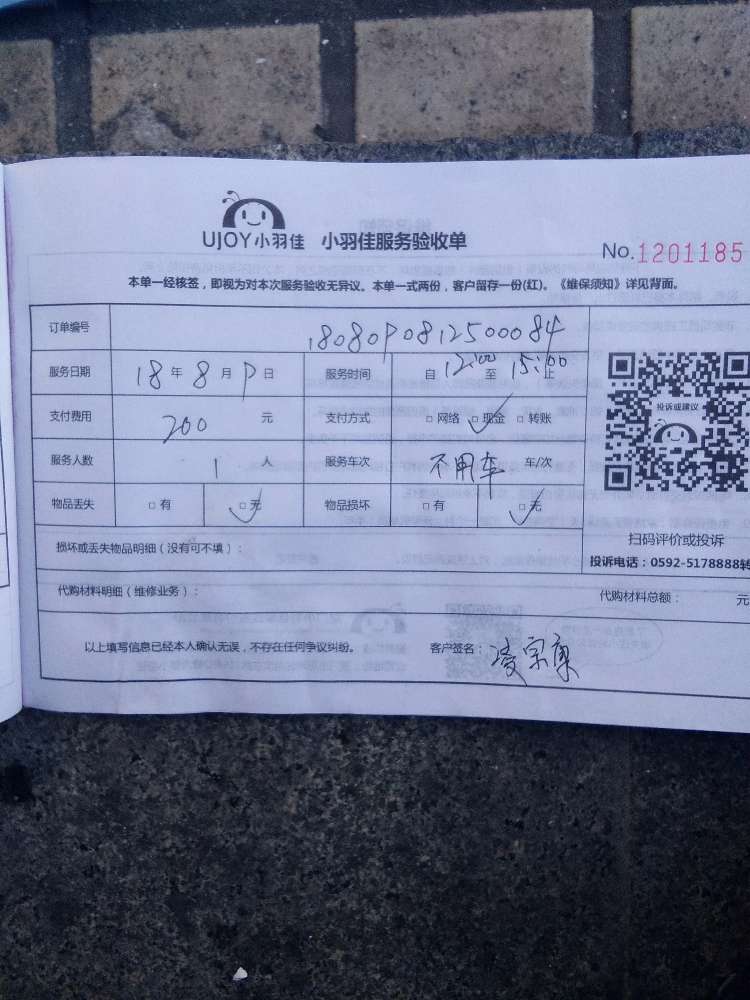 UJOY小羽佳 小羽佳服务验收单
No.1201185
本单一经核签，即视为对本次服务验收无异议。本单一式两份，客户留存一份(红)。《维保须知》详见背面。
订单编号 180809081250084
服务日期 18年8月9日 服务时间 自12:00至15:00止
支付费用 200元 支付方式 □网络 □现金 □转账
投诉或建议
服务人数 1人 服务车次 不用车 车/次
物品丢失 □有 □无 物品损坏 □有 □无
扫码评价或投诉
损坏或丢失物品明细（没有可不填）：
投诉电话：0592-5178888转
代购材料明细（维修业务）： 代购材料总额： 元
以上填写信息已经本人确认无误，不存在任何争议纠纷。 客户签名：凌宗康